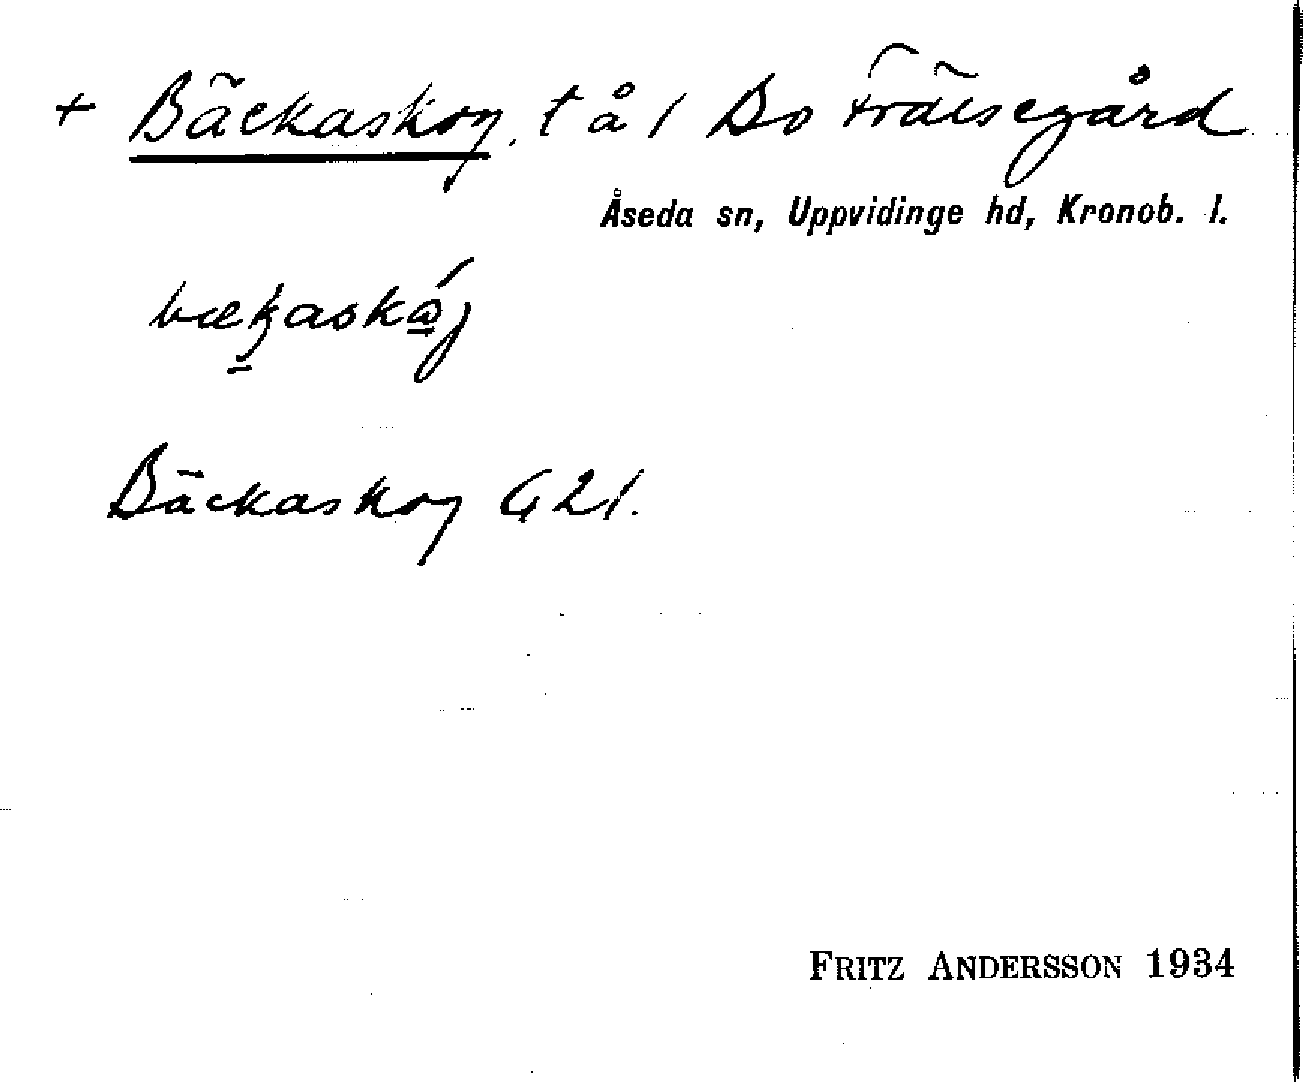 + Bäckaskog, t å / Bo Frälsegård
Åseda sn, Uppvidinge hd, Kronob. l.
Bäckaskog G 21.
FRITZ ANDERSSON 1934